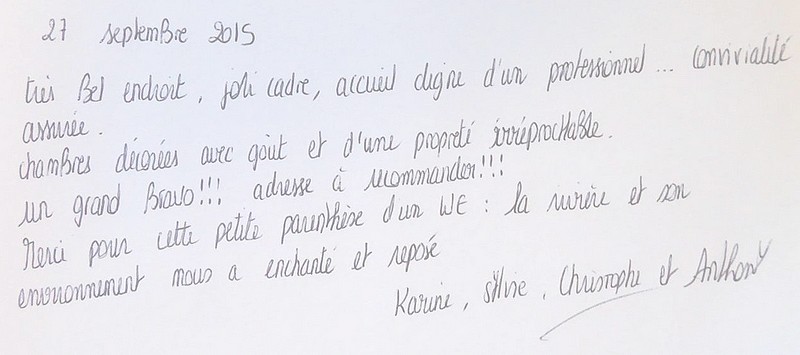 27 septembre 2015
très Bel endroit, joli cadre, accueil digne d'un professionnel... convivialité
assurée.
chambres décorées avec goût et d'une propreté irréprochable.
un grand Bravo!!! adresse à recommander!!!
Merci pour cette petite parenthèse d'un WE : la rivière et son
environnement nous a enchanté et reposé
Karine, Sylvie, Christophe et Anthony